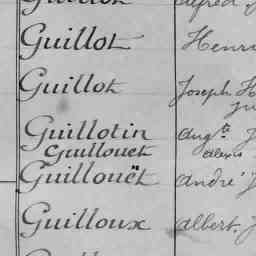 Guillot Henri
Guillot Joseph
Guillotin Aug.te
Guillouet alexis
Guillouët André
Guilloux Albert.